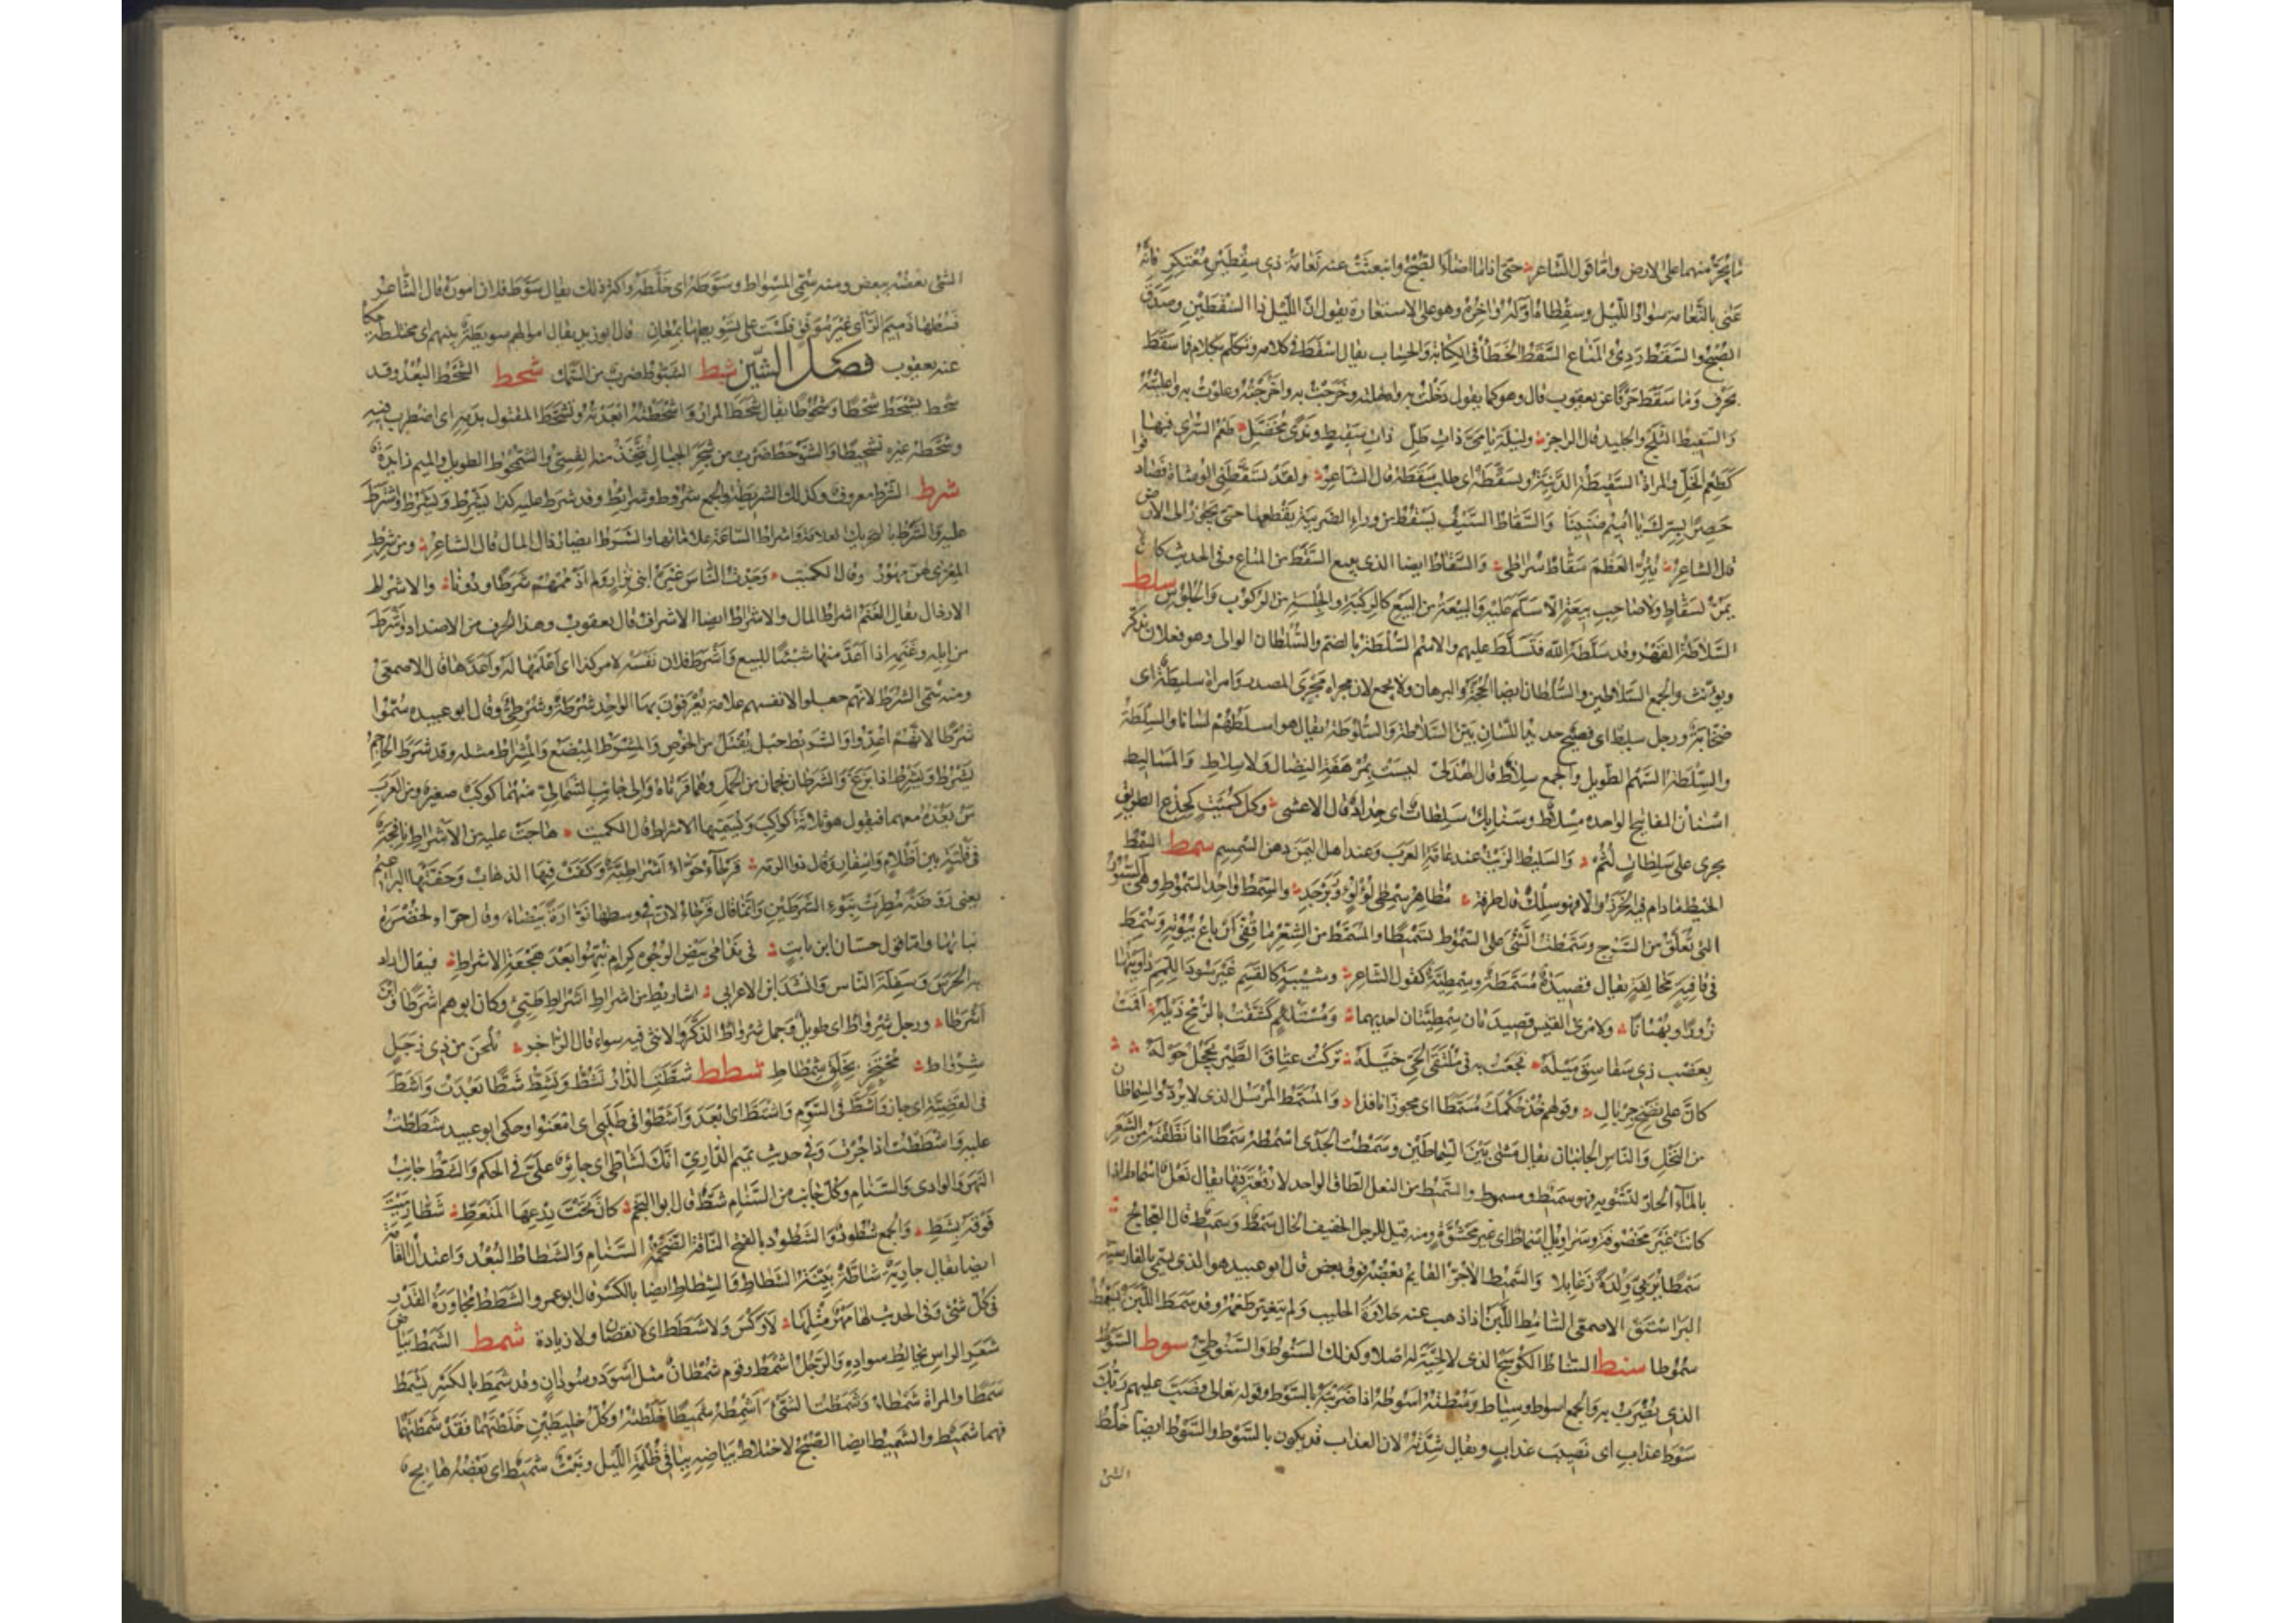 ما يجر منهما على الارض واما قول الشاعر حتى اذا ما اضاء الصبح وانبعثت عنه نعامة ذي سقطين معتكر فانه
عنى بالنعامة سواد الليل وسقطاه اوله واخره وهو على الاستعارة يقول ان الليل ذا السقطين وصدق
الصبح والسقط ردئ المتاع السقط الخطأ فى الكتابة والحساب يقال اسقط فى كلامه وتكلم بكلام فما سقط
بحرف وما سقط حرفا عن يعقوب قال وهو كما يقول دخلت به وادخلته وخرجت به واخرجته وعلوت به واعليته
والسقيط الثلج والجليد قال الراجز وليلة يا مى ذات طل ذات سقيط وندى مخضل طعم السرى فيها
كطعم الخل والمراة السقيطة الدنيئة وتسقطه اى طلب سقطه قال الشاعر ولقد تسقطنى الوشاة فصادفوا
حصرا بسرك يا اميم ضنينا والسقاط السيف يسقط من وراء الضريبة يقطعها حتى يجوز الى الارض
قال الشاعر يتر العظم سقاط سراطى والسقاط ايضا الذى يبيع السقط من المتاع وفى الحديث كان لا
يمر بسقاط ولا صاحب بيعة الا سلم عليه والبيعة من البيع كالركبة والجلسة من الركوب والجلوس سلط
السلاطة القهر وقد سلطه الله فتسلط عليهم والاسم السلطة بالضم والسلطان الوالى وهو فعلان يذكر
ويونث والجمع السلاطين والسلطان ايضا الحجة والبرهان ولا يجمع لان مجراه مجرى المصدر وامراة سليطة اى
صخابة ورجل سليط اى فصيح حديد اللسان بين السلاطة والسلوطة يقال هو اسلطهم لسانا والسلطة
والسلطة السهم الطويل والجمع سلاط قال الهذلى ليست بمرهفة النصال ولا سلاط والمساليط
اسنان المفاتيح الواحدة مسلاط وسنابك سلطات اى حداد قال الاعشى وكل كميت كجذع الطريق
يجرى على سلطات لثم والسليط الزيت عند عامة العرب وعند اهل اليمن دهن السمسم سمط السمط
الخيط ما دام فيه الخرز والا فهو سلك قال طرفة مظاهر سمطى لؤلؤ وزبرجد والسمط واحد السموط وهى السيور
التى تعلق من السرج وسمطت الشئ على السموط تسميطا والمسمط من الشعر ما قفى ارباع بيوته وسمط
فى قافية مخالفة يقال قصيدة مسمطة وسمطية كقول الشاعر وشيبة كالقسم غير سود اللمم داويتها
زورا وبهتانا ولامرئ القيس قصيدتان سمطيتان احديهما ومستلئم كشفت بالرمح ذيله اقمت
بعضب ذى سفاسق ميله فجعت به فى ملتقى الحى خيله تركت عتاق الطير تحجل حوله
كان على نضح جريال وقولهم خذ حكمك مسمطا اى مجوزا نافذا والمسمط المرسل الذى لا يرد والسماطان
من النخل والناس الجانبان يقال مشى بين السماطين وسمطت الجدى اسمطه سمطا اذا نظفته من الشعر
بالماء الحار لتشويه فهو سميط ومسموط والسميط من النعل الطاق الواحد لا رقعة فيها يقال نعل اسماط اذا
كانت غير مخصوفة وسراويل اسماط اى غير محشوة ومنه قيل للرجل الخفيف الحال سمط وسميط قال العجاج
سمطا يربى ولدة زعابلا والسميط الآجر القايم بعضه فوق بعض قال ابو عبيد هو الذى يسمى بالفارسية
البراستق الاصمعى السامط اللبن اذا ذهب عنه حلاوة الحليب ولم يتغير طعمه وقد سمط اللبن يسمط
سموطا سنط السناط الكوسج الذى لا لحية له اصلا وكذلك السنوط والسنوطى سوط السوط
الذى يضرب به والجمع اسواط وسياط وسطته اسوطه اذا ضربته بالسوط وقوله تعالى فصب عليهم ربك
سوط عذاب اى نصيب عذاب ويقال شدته لان العذاب قد يكون بالسوط والسوط ايضا خلط
الشئ
الشئ بعضه ببعض ومنه سمى المسواط وسوطه اى خلطه واكثر ذلك يقال سوط فلان اموره قال الشاعر
فسطها ذميم الراى غير موفق فلست على تسويطها بمعان قال ابو زيد يقال اموالهم سويطة بينهم اى مختلطة حكاه
عنه يعقوب فصل الشين شبط الشبوط ضرب من السمك شحط الشحط البعد وقد
شحط يشحط شحطا وشحوطا يقال شحط المزار واشحطته ابعدته وتشحط المقتول بدمه اى اضطرب فيه
وشحطه غيره تشحيطا والشوحط ضرب من شجر الجبال يتخذ منه القسى والشمحوط الطويل والميم زايدة
شرط الشرط معروف وكذلك الشريطة والجمع شروط وشرائط وقد شرط عليه كذا يشرط ويشرط واشترط
عليه والشرط بالتحريك العلامة واشراط الساعة علاماتها والشرط ايضا رذال المال قال الشاعر ومن شرط
المعزى لهن مهور وقال الكميت وجدت الناس غير ابنى نزار ولم اذممهم شرطا ودونا والاشراط
الارذال يقال الغنم اشراط المال والاشراط ايضا الاشراف قال يعقوب وهذا الحرف من الاضداد واشرط
من ابله وغنمه اذا اعد منها شيئا للبيع واشرط فلان نفسه لامر كذا اى اعلمها له واعدها قال الاصمعى
ومنه سمى الشرط لانهم جعلوا لانفسهم علامة يعرفون بها الواحد شرطة وشرطى وقال ابو عبيدة سموا
شرطا لانهم اعدوا والشريط حبل يفتل من الخوص والمشرط المبضع والمشراط مثله وقد شرط الحاجم
يشرط ويشرط اذا بزغ والشرطان نجمان من الحمل وهما قرناه والى جانب الشمالى منهما كوكب صغير ومن العرب
من يعده معهما فيقول هو ثلاثة كواكب ويسميها الاشراط قال الكميت هاجت عليه من الاشراط نافجة
فى فلتة بين اظلام واسفار وقال ذو الرمة قرحاء حواء اشراطية وكفت فيها الذهاب وحفتها البراعيم
يعنى روضة مطرت بنوء الشرطين وانما قال قرحاء لان فى وسطها نوارة بيضاء وقال حواء لخضرة
نباتها واما قول حسان ابن ثابت فى ندامى بيض الوجوه كرام نبهوا بعد هجعة الاشراط فيقال اراد
به الحرس وسفلة الناس وانشد ابن الاعرابى اشاريط من اشراط اشراط طيئ وكان ابوهم اشرطا وابن
اشرطا ورجل شرواط اى طويل وجمل شرواط الذكر والانثى فيه سواء قال الراجز يلحن من ذى زجل
شرواط محتجز بخلق شمطاط شطط شطت الدار تشط وتشط شطا بعدت واشط
فى القضية اى جار واشط فى السوم واشتط اى ابعد واشطوا فى طلبى اى امعنوا وحكى ابو عبيد شططت
عليه واشططت اذا جرت وفى حديث تميم الدارى انك لشاطى اى جائر على فى الحكم والشط جانب
النهر والوادى والسنام وكل جانب من السنام شط قال ابو النجم كان تحت درعها المنعط شطا رميت
فوقه بشط والجمع شطوط والشطوط بالفتح الناقة الضخمة السنام والشطاط البعد واعتدال القامة
ايضا يقال جارية شاطة بينة الشطاط والشطاط ايضا بالكسر قال ابو عمرو الشطط مجاوزة القدر
فى كل شئ وفى الحديث لها مهر مثلها لا وكس ولا شطط اى لا نقصان ولا زيادة شمط الشمط بياض
شعر الراس يخالط سواده والرجل اشمط وقوم شمطان مثل اسود وسودان وقد شمط بالكسر يشمط
شمطا والمراة شمطاء وشمطت الشئ اشمطه شمطا خلطته وكل خليطين خلطتهما فقد شمطتهما
فهما شميط والشميط ايضا الصبح لاختلاط بياضه بباقى ظلمة الليل ونبت شميط اى بعضه هايج